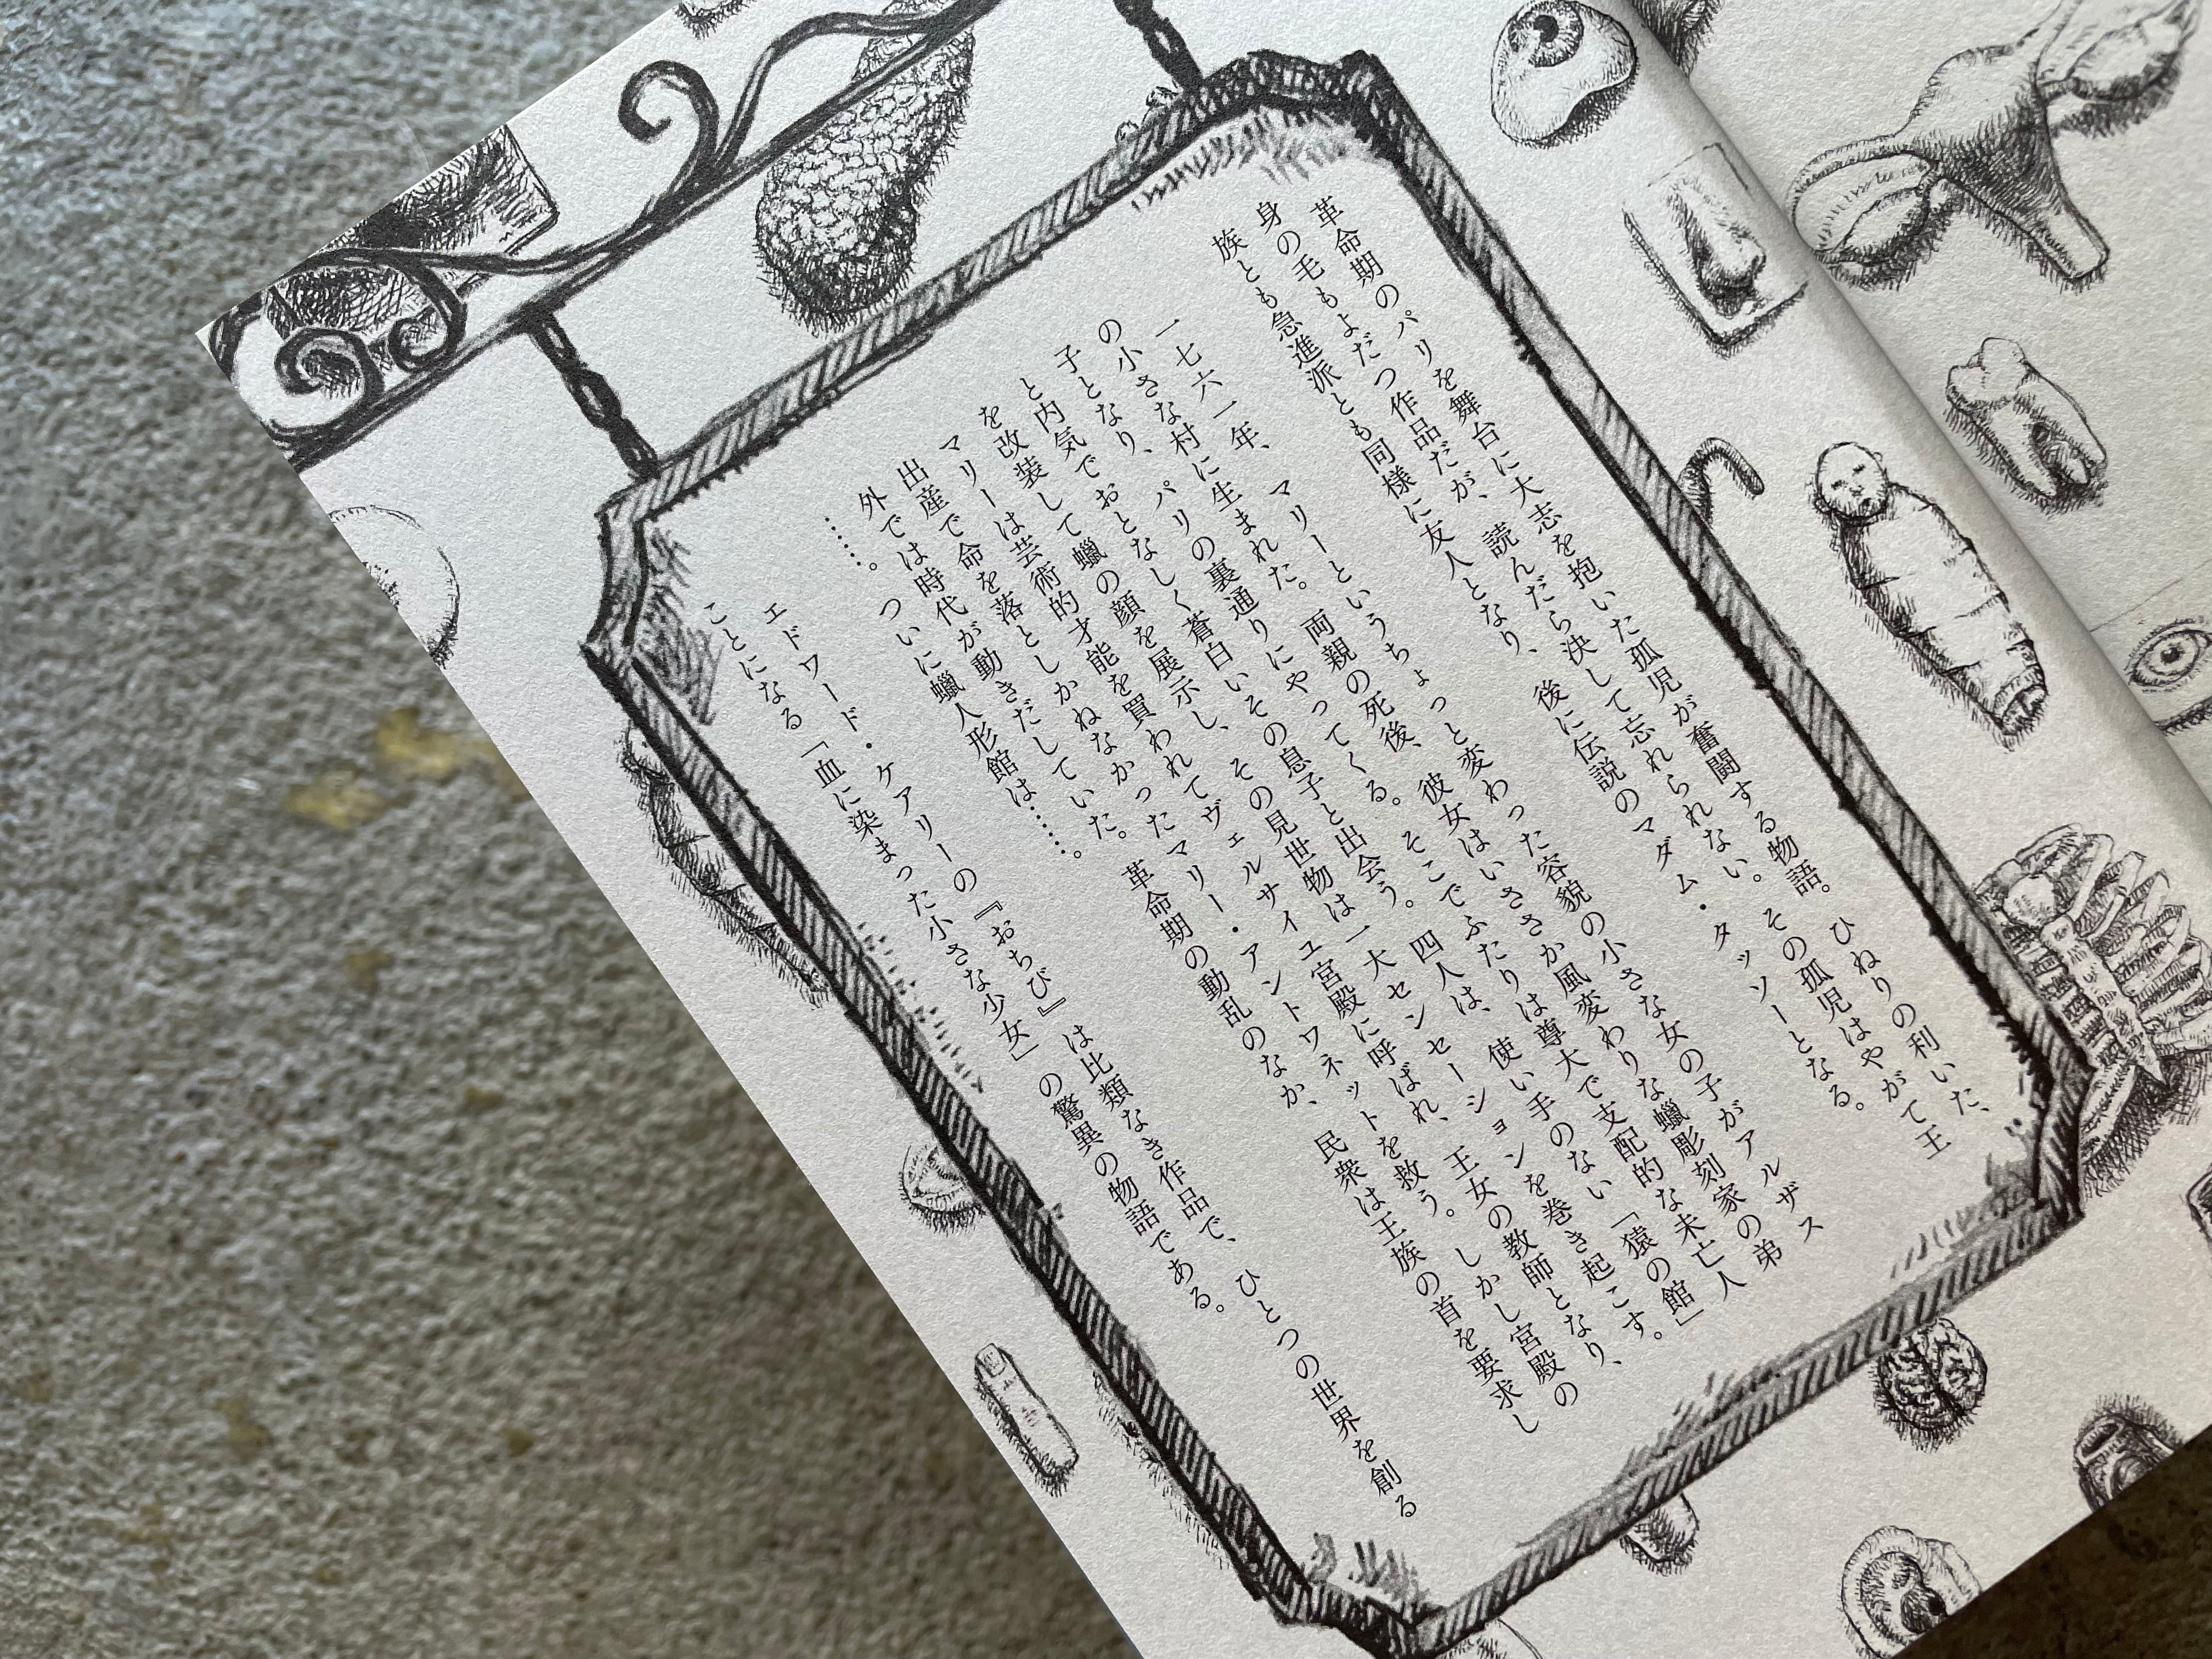 革命期のパリを舞台に大志を抱いた孤児が奮闘する物語。ひねりの利いた、
身の毛もよだつ作品だが、読んだら決して忘れられない。その孤児はやがて王
族とも急進派とも同様に友人となり、後に伝説のマダム・タッソーとなる。
一七六一年、マリーというちょっと変わった容貌の小さな女の子がアルザス
の小さな村に生まれた。両親の死後、彼女はいささか風変わりな蠟彫刻家の弟
子となり、パリの裏通りにやってくる。そこでふたりは尊大で支配的な未亡人
と内気でおとなしく蒼白いその息子と出会う。四人は、使い手のない「猿の館」
を改装して蠟の顔を展示し、その見世物は一大センセーションを巻き起こす。
マリーは芸術的才能を買われてヴェルサイユ宮殿に呼ばれ、王女の教師となり、
出産で命を落としかねなかったマリー・アントワネットを救う。しかし宮殿の
外では時代が動きだしていた。革命期の動乱のなか、民衆は王族の首を要求し
……。ついに蠟人形館は……。
エドワード・ケアリーの『おちび』は比類なき作品で、ひとつの世界を創る
ことになる「血に染まった小さな少女」の驚異の物語である。